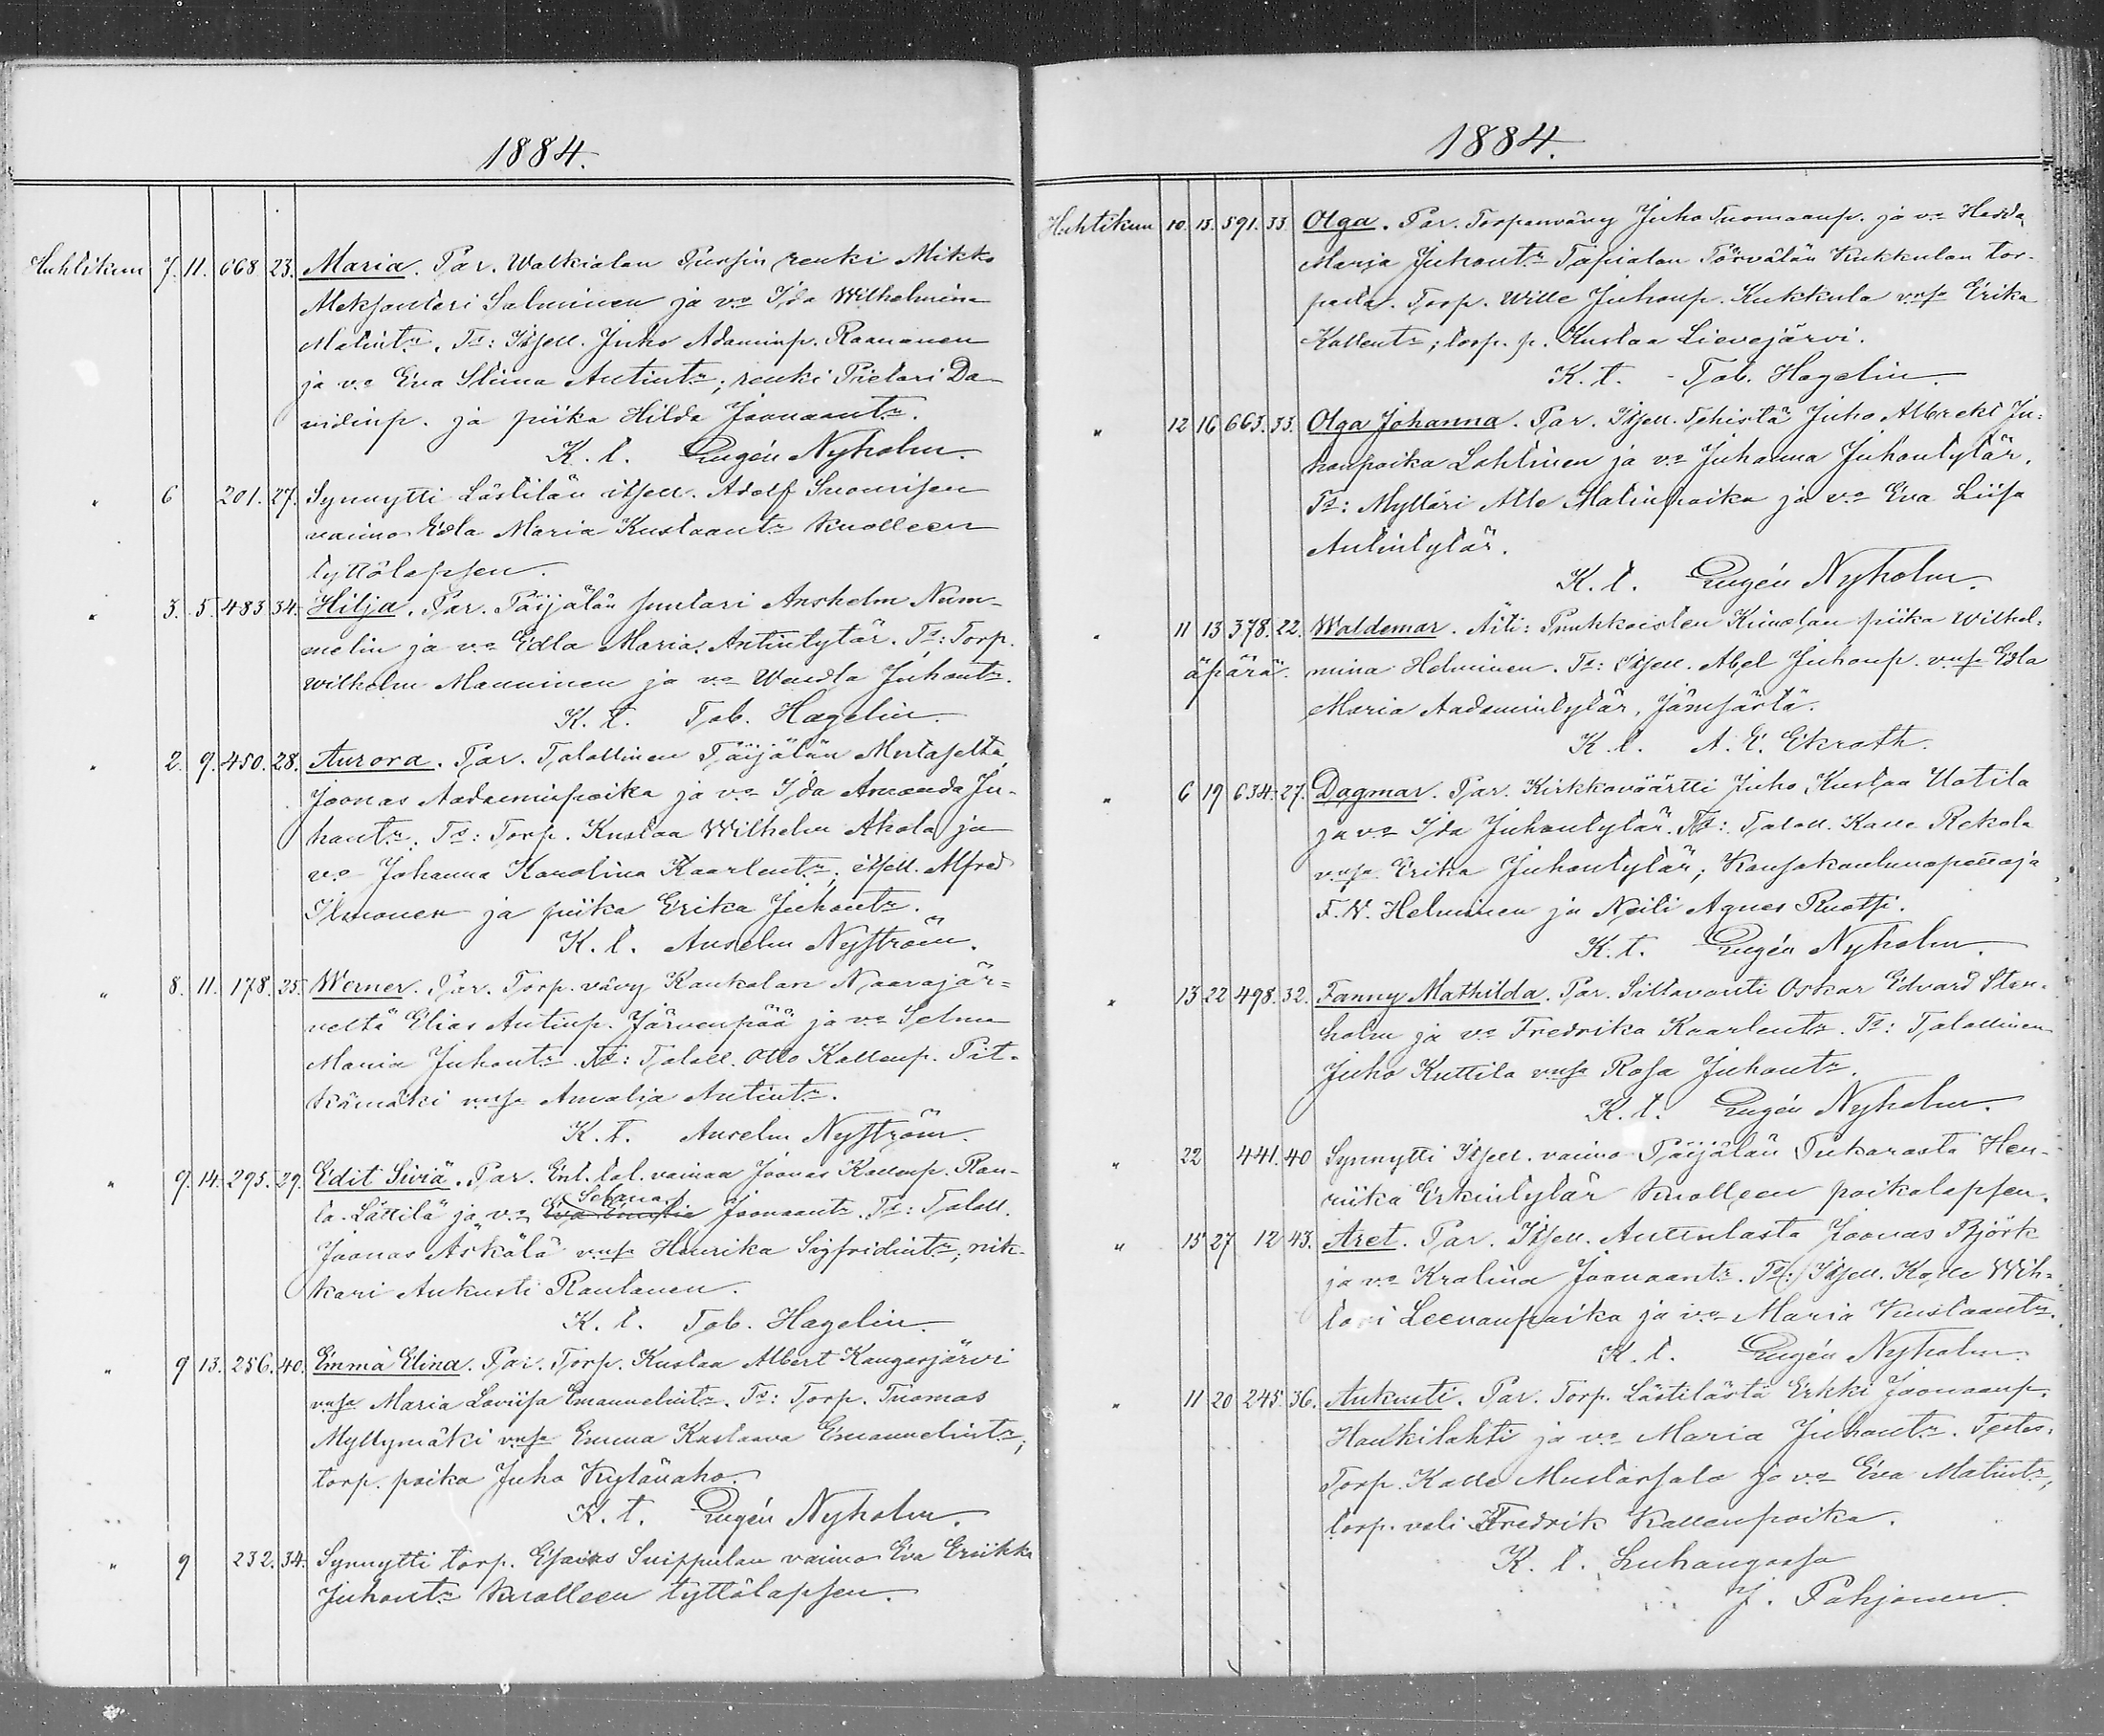 1884.
Huhtikuu 7. 11. 668. 23. Maria. Par. Walkialan Pursin renki Mikko
Meksanteri Salminen ja v:o Ida Wilhelmina
Matint:r. T:s: Itsell. Juho Adaminp. Raananen
ja v:o Eva Stiina Antint:r; renki Pietari Da-
vidinp. ja piika Hilda Joonaant:r.
K. t. Eugén Nyholm.
" 6 201. 27. Synnytti Lästilän itsell. Adolf Suonisen
vaimo Edla Maria Kustaant:r kuolleen
tyttölapsen.
" 3. 5. 483 34. Hilja. Par. Päijälän suutari Anshelm Num-
melin ja v:o Edla Maria Antintytär. T:s: Torp.
Wilhelm Manninen ja v:o Wendla Juhont:r.
K. t. Tob. Hagelin.
" 2. 9. 450. 28. Aurora. Par. Talollinen Päijälän
Joonas Aadaminpoika ja v:o Ida Amanda Ju-
hont:r. T:s: Torp. Kustaa Wilhelm Ahola ja
v:o Johanna Karolina Kaarlent:r; itsell. Alfred
Ilmonen ja piika Erika Juhont:r.
K. t. Anselm Nyström.
" 8. 11. 178. 25. Werner. Par. Torp. vävy Kaukolan Naarajär-
veltä Elias Antinp. Järvenpää ja v:o Selma
Maria Juhont:r. T:s: Taloll. Otto Kallenp. Pit-
kämäki v:nsa Amalia Antint:r.
K. t. Anselm Nyström.
" 9. 14. 295. 29. Edit Siviä. Par. Ent. tal. vainaa Joonas Kallenp. Ran-
ta-Lättilä ja v:o Eva Emilia Joonaant:r. T:s: Taloll.
Joonas Äskälä v:nsa Henrika Sigfridint:r; nik-
kari Aukusti Rantanen.
K. t. Tob. Hagelin.
" 9 13. 256. 40. Emma Elina. Par. Torp. Kustaa Albert Kangasjärvi
v:nsa Maria Loviisa Emanuelint:r. T:s: Torp. Tuomas
Myllymäki v:nsa Emma Kustaava Emanuelint:r;
torp. poika Juho Kylänaho.
K. t. Eugén Nyholm.
" 9 232. 34. Synnytti torp. Esaias Snippulan vaimo Eva Eriikka
Juhont:r kuolleen tyttölapsen.
1884.
Huhtikuu 10. 15. 591. 33. Olga. Par. Torpanvävy Juho Tuomaanp. ja v:o Hedda
Marja Juhont:r Tapialan Törvälän Kukkulan tor-
pasta. Torp. Wille Juhonp. Kukkula v:nsa Erika
Kallent:r; torp. p. Kustaa Lievejärvi.
K. t. Tob. Hagelin.
" 12 16 663. 33. Olga Johanna. Par. Itsell. Tehistä Juho Albrekt Ju-
honpoika Lahtinen ja v:o Juhanna Juhontytär.
T:s: Mylläri Atle Matinpoika ja v:o Eva Liisa
Antintytär.
K. t. Eugén Nyholm.
" 11 13 378. 22. Waldemar. Äiti: Puukkoisten Kimolan piika Wilhel-
äpärä. mina Helminen. T:s: Itsell. Abel Juhonp. v:nsa Edla
Maria Aadamintytär, Jämsästä.
K. t. A. E. Ekroth.
" 6 19 634. 27. Dagmar. Par. Kirkkoväärtti Juho Kustaa Uotila
ja v:o Ida Juhontytär. T:s: Taloll. Kalle Rekola
v:nsa Erika Juhontytär; Kansakoulunopettaja
F. W. Helminen ja Neiti Agnes Ruotsi.
K. t. Eugén Nyholm.
" 13 22 498. 32. Fanny Mathilda. Par. Siltavouti Oskar Edvard Sten-
holm ja v:o Fredrika Kaarlent:r. T:s: Talollinen
Juho Kuttila v:nsa Rosa Juhont:r.
K. t. Eugén Nyholm.
" 22 441. 40 Synnytti Itsell. vaimo Päijälän Pukarasta Hen-
riika Erkintytär kuolleen poikalapsen.
" 15 27 12 43. Aret. Par. Itsell. Auttulasta Joonas Björk
ja v:o Kralina Joonaant:r. T:s: Itsell. Kalle Wih-
tori Leenanpoika ja v:o Maria Kustaant:r.
K. t. Eugén Nyholm.
" 11 20 245. 36. Aukusti. Par. Torp. Lästilästä Erkki Joonaanp.
Haukilahti ja v:o Maria Juhont:r. Testes.
Torp. Kalle Mustassalo ja v:o Eva Matint:r;
torp. veli Fredrik Kallenpoika.
K. t. Luhangassa
J. Pohjonen.